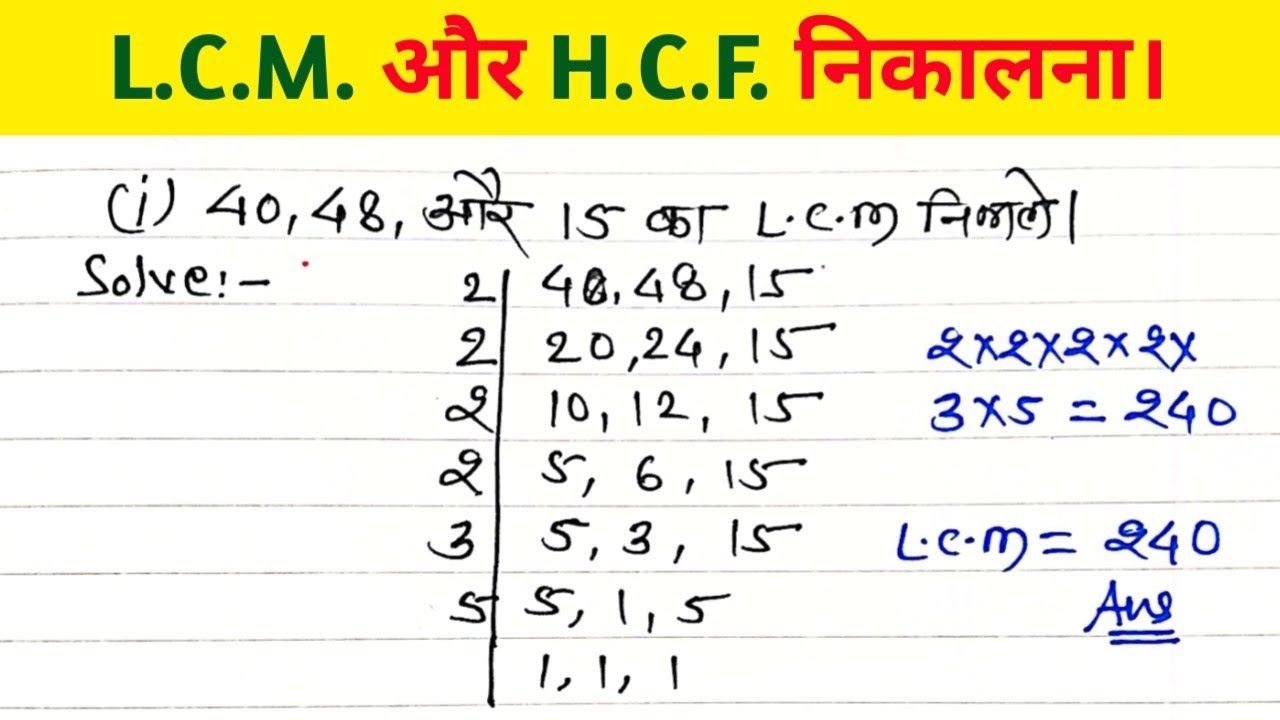 L.C.M. और H.C.F. निकालना।
(i) 40, 48, और 15 का L.C.M निकाले।
Solve:-
2 40, 48, 15
2 20, 24, 15
2 10, 12, 15
2 5, 6, 15
3 5, 3, 15
5 5, 1, 5
1, 1, 1
2×2×2×2×
3×5 = 240
L.C.M = 240
Ans